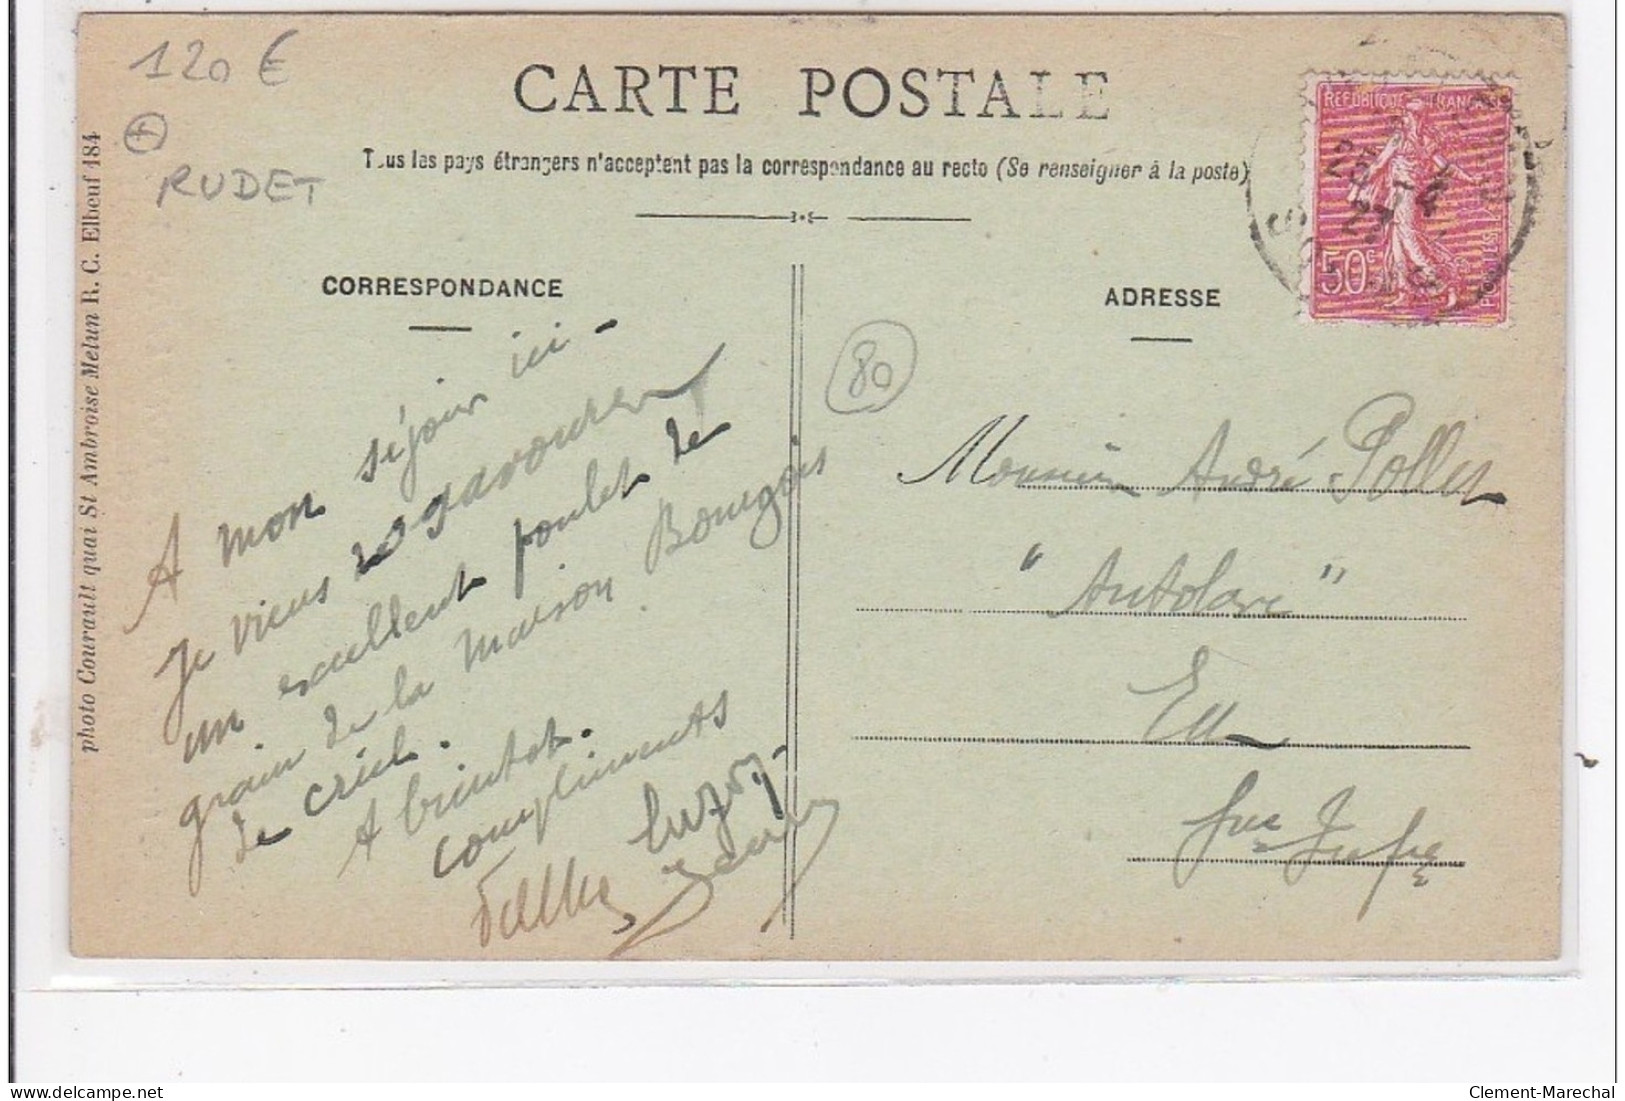 120 €
RUDET
CARTE POSTALE
Tous les pays étrangers n'acceptent pas la correspondance au recto (Se renseigner à la poste)
photo Courault quai St Ambroise Melun R. C. Elbeuf 484
CORRESPONDANCE
A mon séjour ici -
Je viens
un excellent poulet de
grain de la maison Bourgois
de criel.
A bientot.
compliments
80
ADRESSE
Monsieur André Pollet
"Autolare"
Eu
REPUBLIQUE FRANÇAISE
50c
POSTES
delcampe.net
Clement-Marechal